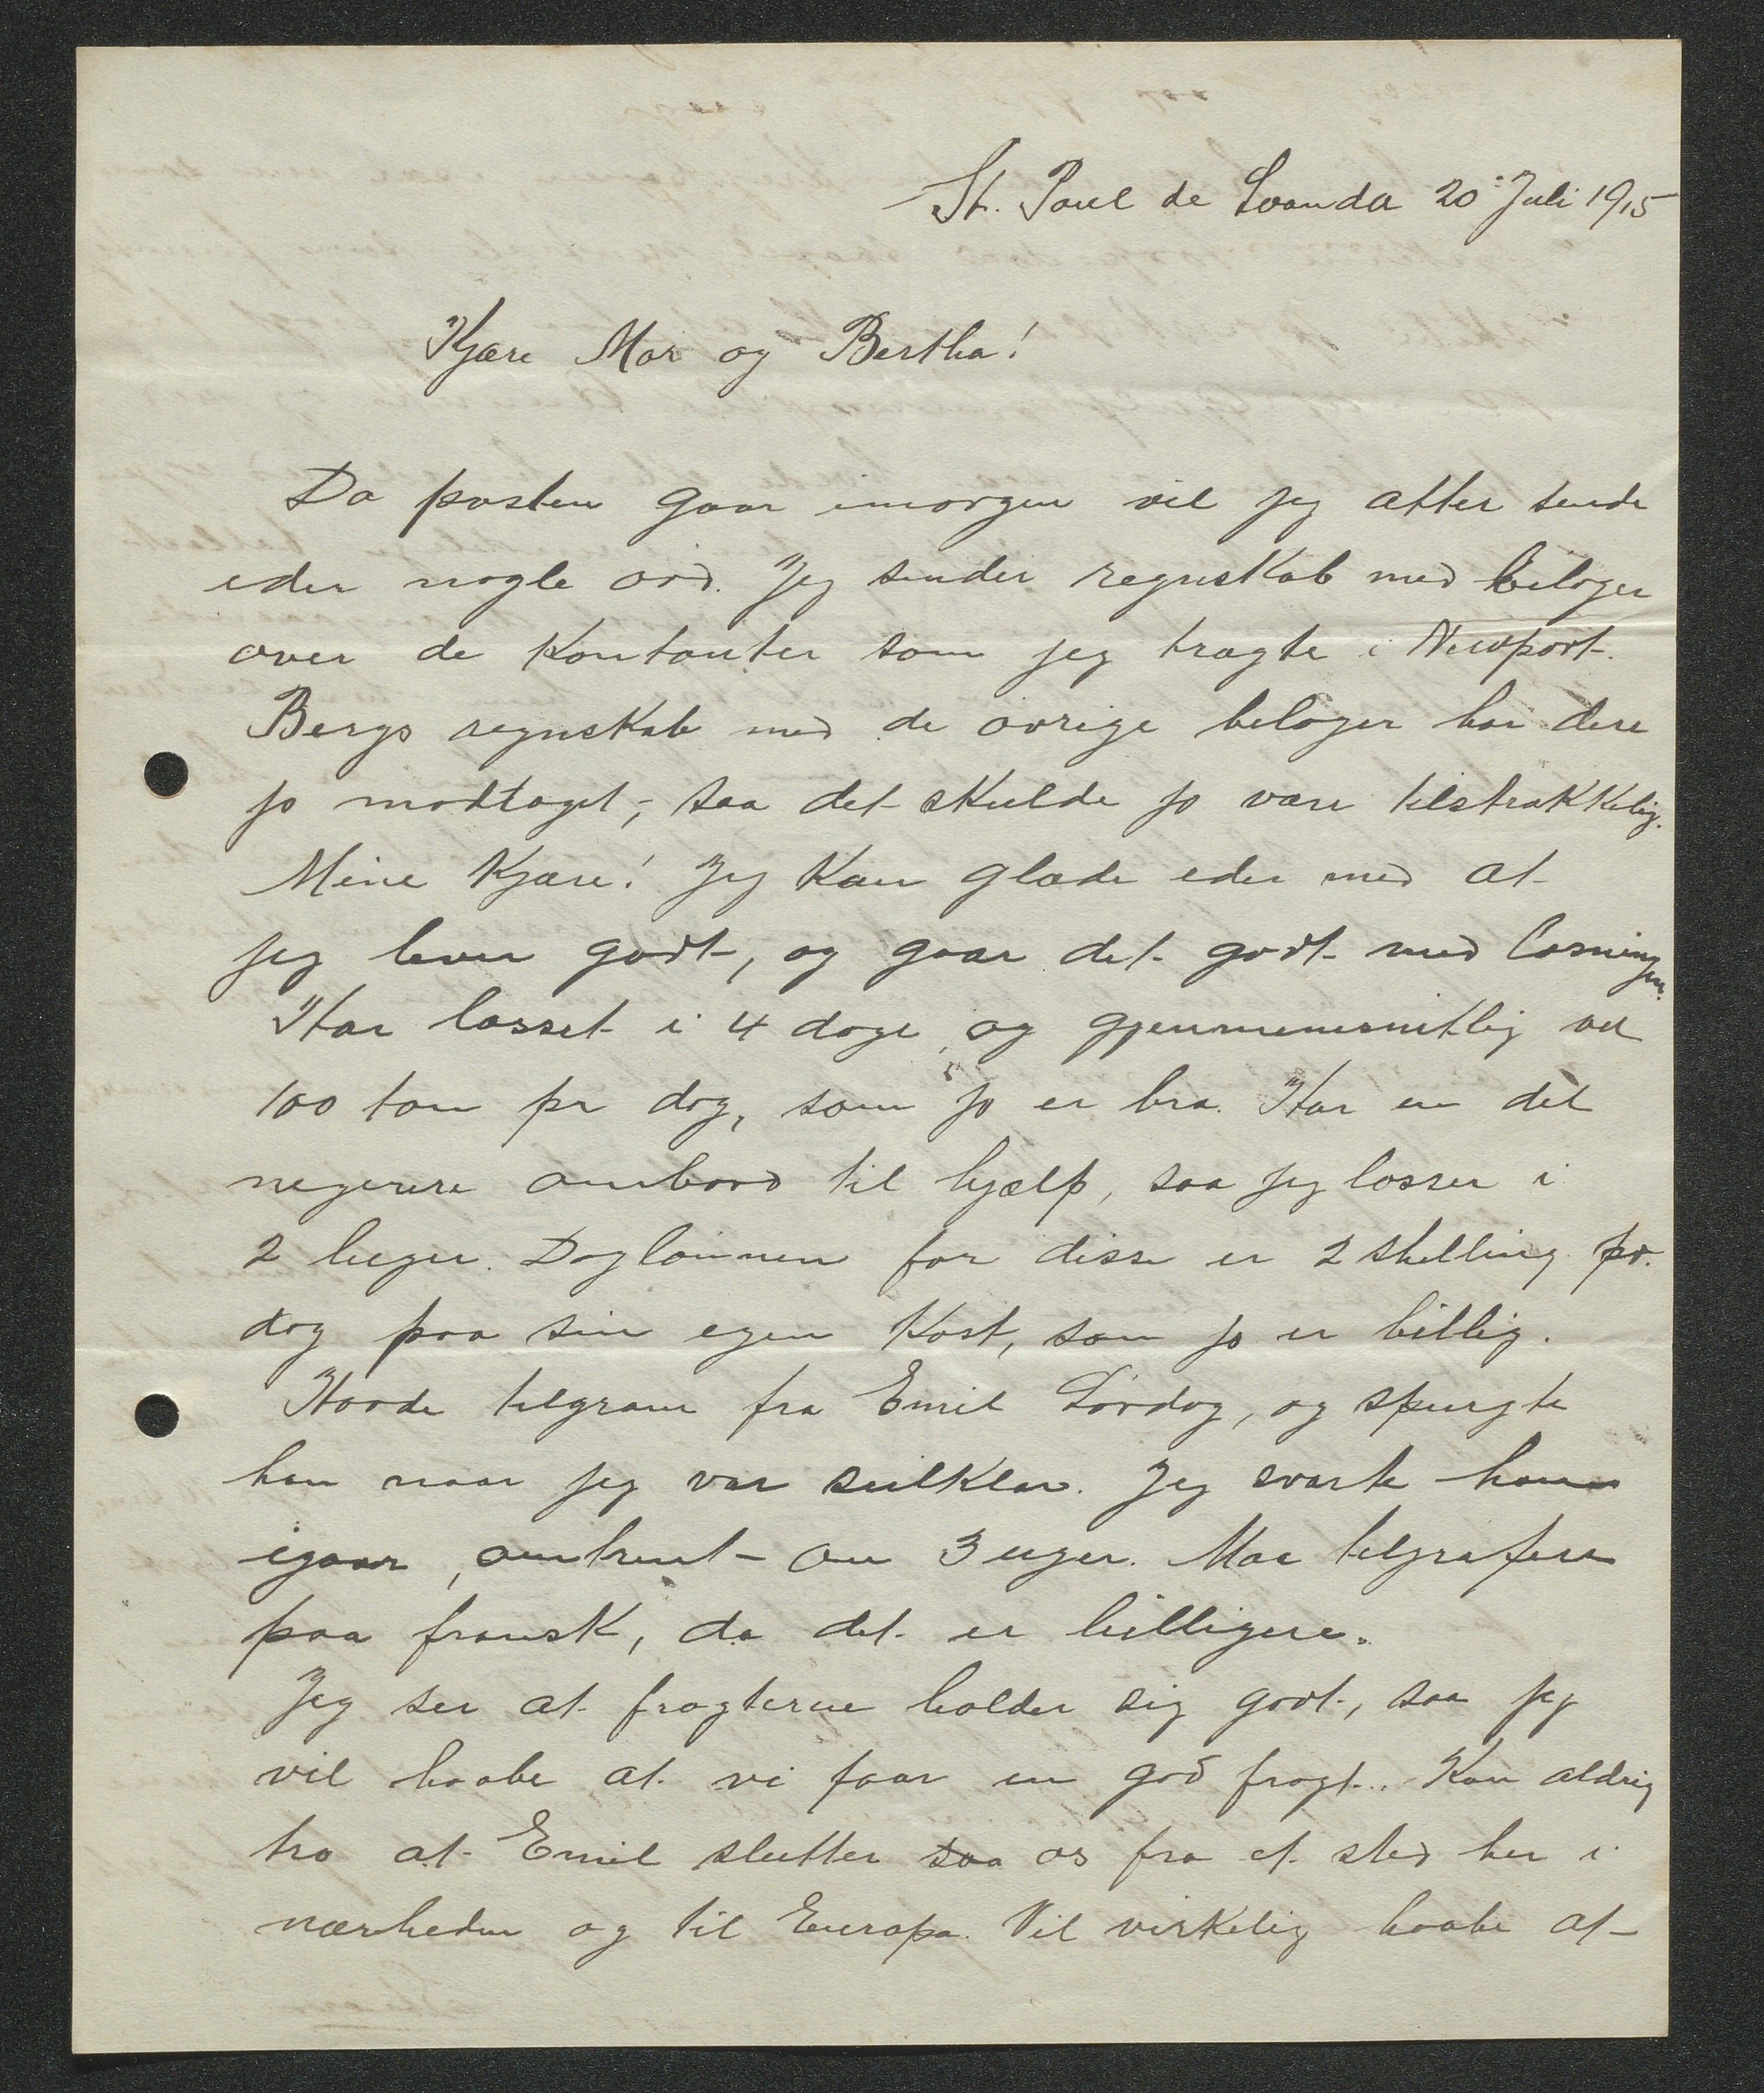 St. Paul de Loanda 20 Juli 1915
Kjære Mor og Bertha!
Da posten gaar imorgen vil jeg atter sende
eder nogle ord. Jeg sender regnskab med bilager
over de kontanter som jeg tragte i Newport.
Bergs regnskab med de øvrige bilager har dere
jo modtaget, saa det skulde jo være tilstrækkelig.
Mine Kjære! Jeg kan glæde eder med at
jeg lever godt, og gaar det godt med losningen.
Har losset i 4 dage, og gjennemsnitlig vel
100 ton pr dag, som jo er bra. Har en del
negerere ombord til hjælp, saa jeg losser i
2 luger. Daglønnen for disse er 2 skilling pr.
dag paa sin egen kost, som jo er billig.
Havde telgram fra Emil Lørdag, og spurgte
han naar jeg var seilklar. Jeg svarte ham
igaar, omtrent om 3 uger. Maa telgrafere
paa fransk, da det er billigere.
Jeg ser at fragterne holder sig godt, saa jeg
vil haabe at vi faar en god fragt. Kan aldrig
tro at Emil slutter saa os fra et sted her i
nærheden og til Europa. Vil virkelig haabe at